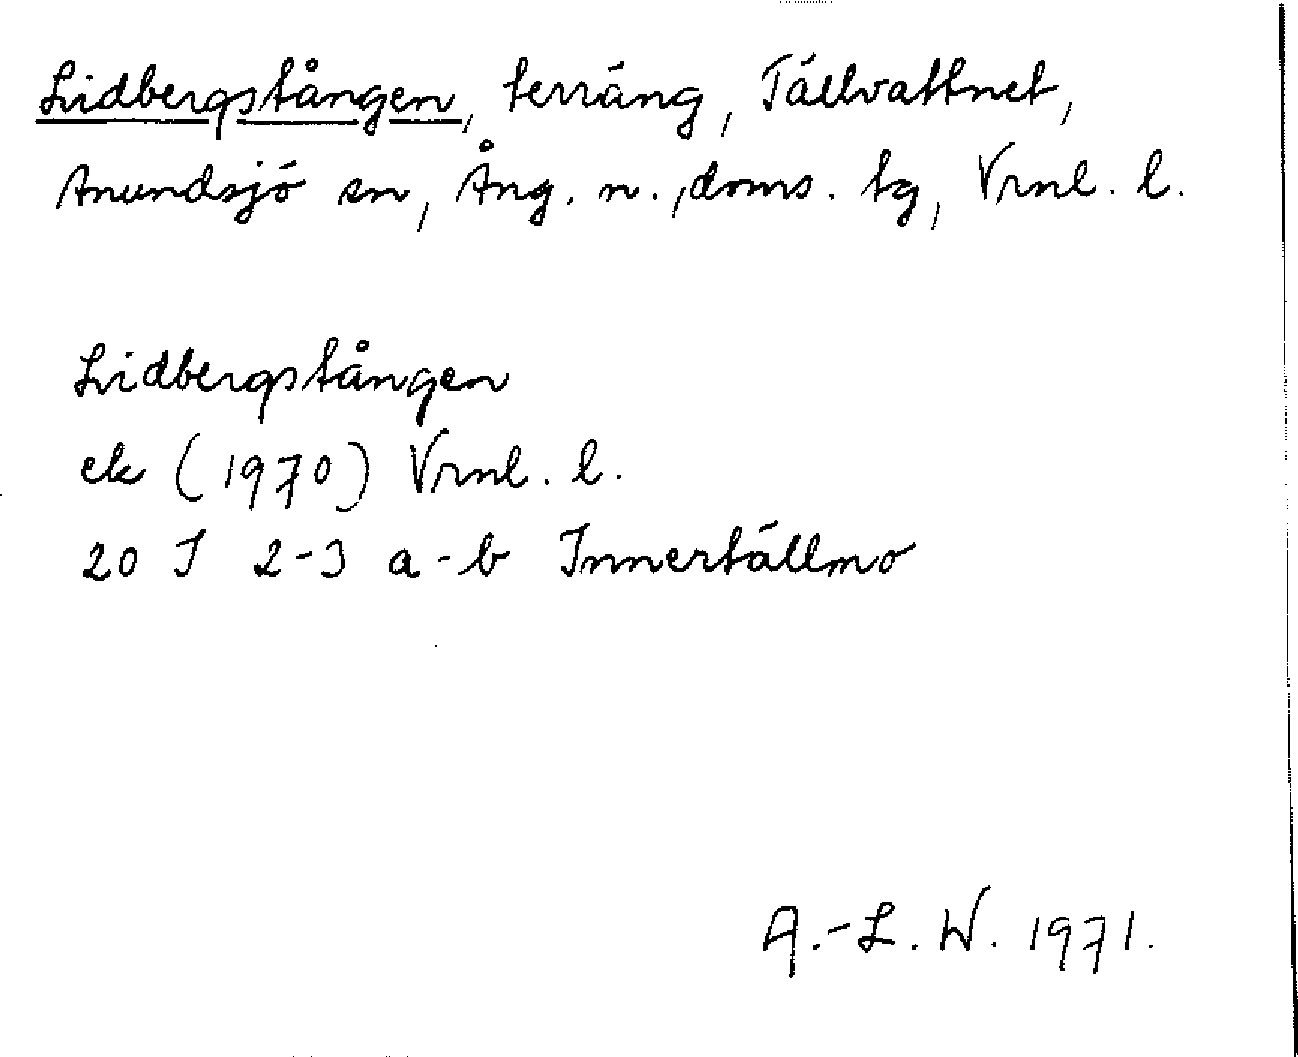 Lidbergstången, terräng, Tällvattnet,
Anundsjö sn, Ång. n., doms. tg, Vrnl. l.
Lidbergstången
ek (1970) Vrnl. l.
20 I 2-3 a-b Innertällmo
A.-L. W. 1971.